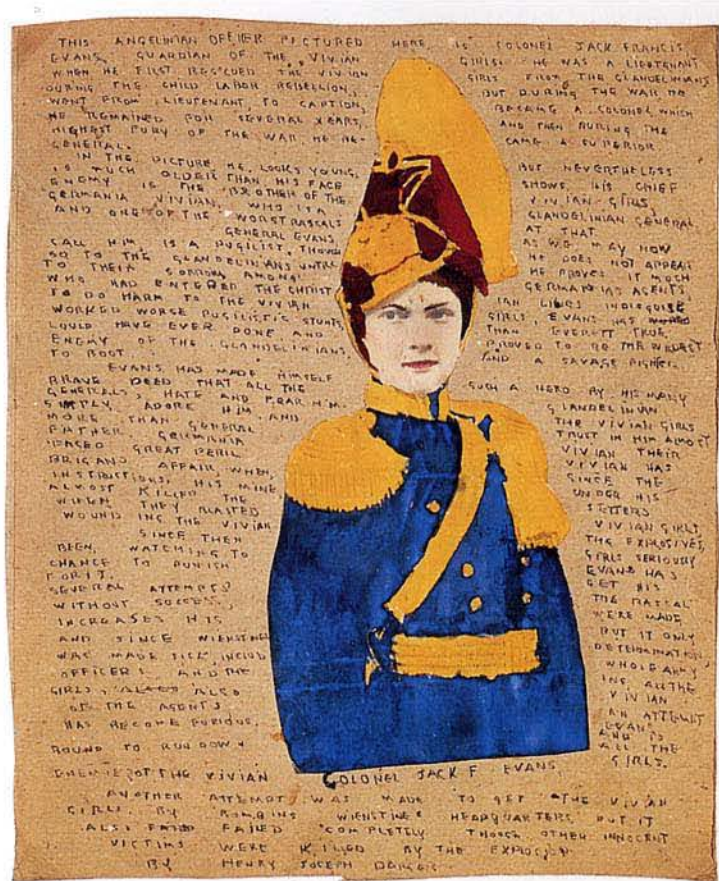 THIS ANGELINIAN OFFICER PICTURED HERE IS COLONEL JACK FRANCIS,
EVANS, GUARDIAN OF THE VIVIAN GIRLS. HE WAS A LIEUTENANT
WHEN HE FIRST RESCUED THE VIVIAN GIRLS FROM THE GLANDELINIANS
DURING THE CHILD LABOR REBELLION, BUT DURING THE WAR HE
WENT FROM LIEUTENANT, TO CAPTION, BECAME A COLONEL WHICH
HE REMAINED FOR SEVERAL YEARS, AND THEN DURING THE
HIGHEST FURY OF THE WAR HE BE- CAME A SUPERIOR
GENERAL.
IN THE PICTURE HE LOOKS YOUNG, BUT NEVERTHELESS
IS MUCH OLDER THAN HIS FACE SHOWS. HIS CHIEF
ENEMY IS THE BROTHER OF THE VIVIAN GIRLS,
GERMANIA VIVIAN, WHO IS A GLANDELINIAN GENERAL
AND ONE OF THE WORST RASCALS AT THAT.
GENERAL EVANS, AS WE MAY NOW
CALL HIM, IS A PUGILIST, THOUGH HE DOES NOT APPEAR
SO TO THE GLANDELINIANS UNTIL HE PROVES IT MUCH
TO THEIR SORROW, AMONG GERMANIAS AGENTS
WHO HAD ENTERED THE CHRIST IAN LINES IN DISGUISE
TO DO HARM TO THE VIVIAN GIRLS, EVANS HAS
WORKED WORSE PUGILISTIC STUNTS THAN EVERETT TRUE,
COULD HAVE EVER DONE AND PROVED TO BE THE WORST
ENEMY OF THE GLANDELINIANS, AND A SAVAGE FIGHTER,
TO BOOT.
EVANS HAS MADE HIMSELF SUCH A HERO BY HIS MANY
BRAVE DEED THAT ALL THE GLANDELINIAN
GENERALS, HATE AND FEAR HIM. THE VIVIAN GIRLS
SIMPLY ADORE HIM AND TRUST IN HIM ALMOST
MORE THAN GENERAL VIVIAN THEIR
FATHER. GERMANIA VIVIAN HAS
FACED GREAT PERIL SINCE THE
BRIGAND AFFAIR, WHEN, UNDER HIS
INSTRUCTIONS, HIS MINE SETTERS
ALMOST KILLED THE VIVIAN GIRLS
WHEN THEY BLASTED THE EXPLOSIVES,
WOUNDING THE VIVIAN GIRLS SERIOUSLY
SINCE THEN EVANS HAS
BEEN WATCHING TO GET HIS
CHANCE TO PUNISH THE RASCAL
FOR IT. WERE MADE
SEVERAL ATTEMPTS BUT IT ONLY
WITHOUT SUCCESS, DETERMINATION
INCREASES HIS WHOLE ARMY
AND SINCE WIENSTINE ING ALL THE
WAS MADE SICK, INCLUD VIVIAN
OFFICERS AND THE AN ATTEMPT
GIRLS, ALSO EVANS
OF THE AGENTS AND IS
HAS BECOME FURIOUS, ALL THE
BOUND TO RUN DOWN GIRLS.
ENEMIES OF THE VIVIAN
COLONEL JACK F EVANS,
ANOTHER ATTEMPT WAS MADE TO GET THE VIVIAN
GIRLS BY BOMBING WIENSTINE HEADQUARTERS BUT IT
ALSO FAILED COMPLETELY THOUGH OTHER INNOCENT
VICTIMS WERE KILLED BY THE EXPLOSION
BY HENRY JOSEPH DARGER